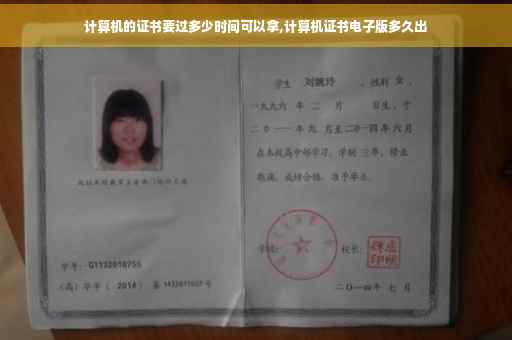 计算机的证书要过多少时间可以拿,计算机证书电子版多久出
学生 刘婉玲 , 性别 女 ,
一九九六 年 二 月 日生, 于
二〇一一 年 九 月至 二〇一四 年 六 月
在本校高中部学习, 学制 三 年, 修业
期满, 成绩合格, 准予毕业。
学号: G1132010755
(高) 毕字 ( 2014 ) 第 1432011027 号
学校:
校长:
二〇一四年 七 月